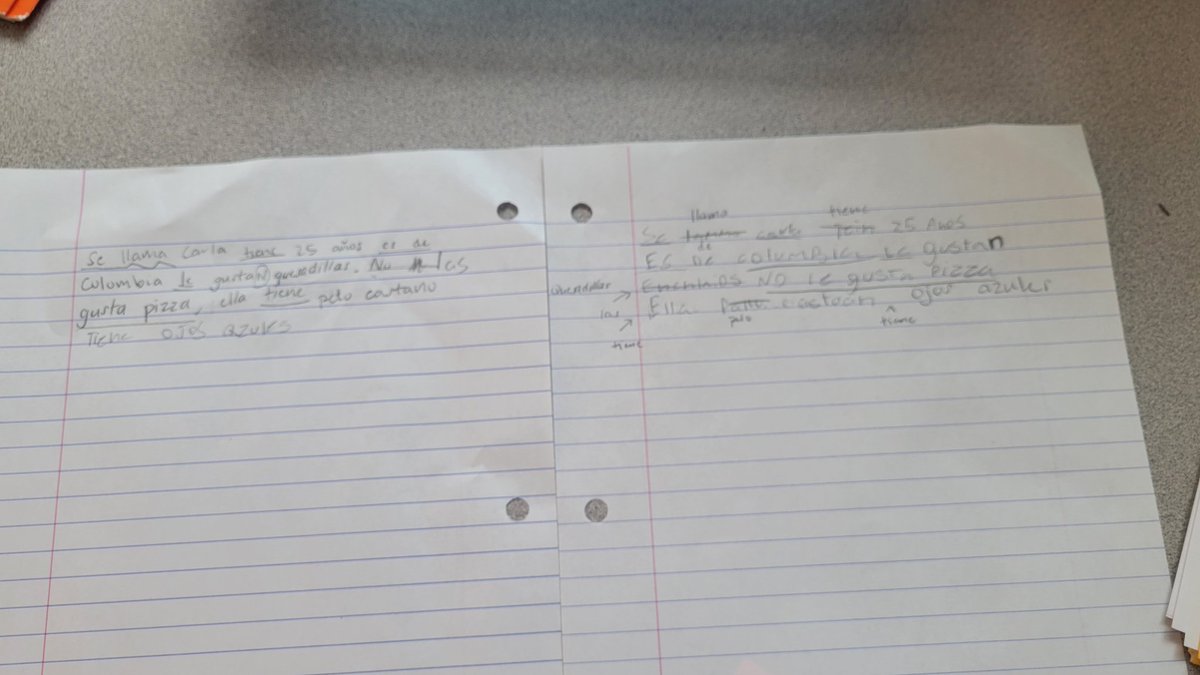 Se llama Carla tiene 25 años es de
Colombia le gustan quesadillas. No las
gusta pizza, ella tiene pelo castano
Tiene ojos azules
llama tiene
Se carla 25 Años
de
ES DE COLUMBIA LE gustan
quesadillas NO le gusta pizza
las Ella castoan ojos azules
pelo tiene
tiene